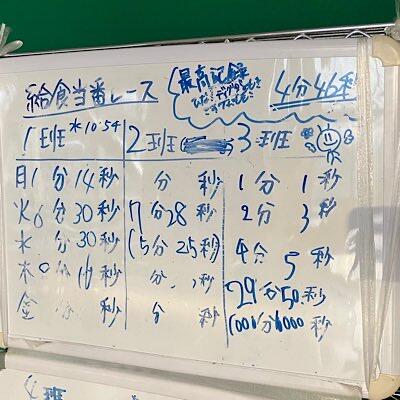 給食当番レース
最高記録
4分46秒
1班 水10:54 2班 3班
月1分14秒 分 秒 1分 1秒
火6分30秒 7分28秒 2分 3秒
水 分30秒 15分25秒 4分 5秒
木 分16秒 分 秒 29分50秒
金 分 秒 分 秒 1001分1000秒
班